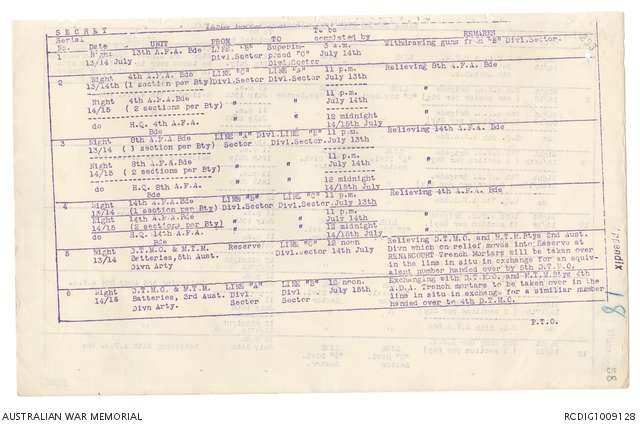 SECRET
Serial No. Date UNIT FROM TO To be completed by REMARKS
1 Night 13/14 July 13th A.F.A. Bde LINE "B" Divl.Sector Superimposed "C" Divl.Sector 3 a.m. July 14th Withdrawing guns from "B" Divl.Sector.
2 Night 13/14th 4th A.F.A. Bde (1 section per Bty) LINE "C" Divl.Sector LINE "A" Divl.Sector 11 p.m. July 13th Relieving 8th A.F.A. Bde
Night 14/15 4th A.F.A. Bde (2 sections per Bty) " " 11 p.m. July 14th
do H.Q. 4th A.F.A. Bde " " 12 midnight 14/15th July
3 Night 13/14 8th A.F.A. Bde (1 section per Bty) LINE "A" Divl. Sector LINE "B" Divl.Sector 11 p.m. July 13th Relieving 14th A.F.A. Bde
Night 14/15 8th A.F.A. Bde (2 sections per Bty) " " 11 p.m. July 14th
do H.Q. 8th A.F.A. Bde " " 12 midnight 14/15th July
4 Night 13/14 14th A.F.A. Bde (1 section per Bty) LINE "B" Divl.Sector LINE "C" Divl.Sector 11 p.m. July 13th Relieving 4th A.F.A. Bde
Night 14/15 14th A.F.A. Bde (2 sections per Bty) " " 11 p.m. July 14th
do H.Q. 14th A.F.A. Bde " " 12 midnight 14/15th July
5 Night 13/14 D.T.M.O. & M.T.M. Batteries, 5th Aust. Divn Arty Reserve LINE "C" Divl. Sector 12 noon 14th July Relieving D.T.M.O. and M.T.M.Btys 2nd Aust.
Divn which on relief moves into Reserve at
Trench Mortars will be taken over
in the line in situ in exchange for an equiv-
alent number handed over by 5th D.T.M.O.
6 Night 14/15 D.T.M.O. & M.T.M. Batteries, 3rd Aust. Divn Arty. LINE "A" Divl. Sector LINE "B" Divl. Sector 12 noon. July 15th Exchanging with D.T.M.O. and M.T.M.Btys 4th
A.D.A. Trench mortars to be taken over in the
line in situ in exchange for a similiar number
handed over to 4th D.T.M.O.
P.T.O.
Appendix
18
58
AUSTRALIAN WAR MEMORIAL
RCDIG1009128